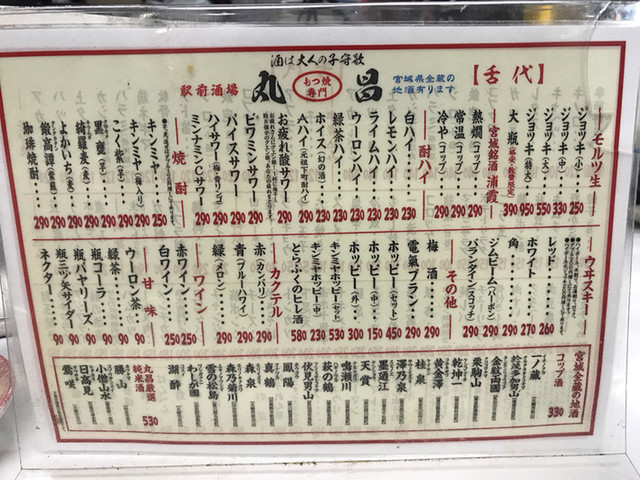 酒は大人の子守歌
駅前酒場
丸
もつ焼
専門
昌
宮城県全蔵の
地酒有ります。
【舌代】
モルツ生
ジョッキ(小)・・・250
ジョッキ(中)・・・330
ジョッキ(大)・・・550
ジョッキ(特大)・・・950
大瓶・・・390
宮城銘酒 浦霞
熱燗(コップ)・・・290
常温(コップ)・・・290
冷や(コップ)・・・290
酎ハイ
白ハイ・・・230
レモンハイ・・・230
ライムハイ・・・230
ウーロンハイ・・・230
緑茶ハイ・・・230
ホイス(幻の酒)・・・230
Aハイ(元祖下町酎ハイ)・・・290
お疲れ酸サワー・・・290
ビワミンサワー・・・290
バイスサワー・・・290
ハイサワー(梅・青リンゴ)・・・290
ミンナミンCサワー・・・290
焼酎
キンミヤ・・・250
キンミヤ(梅入り)・・・290
こりく紫(芋)・・・290
黒甕(芋)・・・290
綾羅麦(麦)・・・290
よかいち(麦)・・・290
珈琲焼酎・・・290
ウヰスキー
レッド・・・260
ホワイト・・・270
角・・・290
ジムビーム(バーボン)・・・290
バランタイン(スコッチ)・・・290
その他
梅酒・・・290
電氣ブラン・・・290
ホッピー(セット)・・・450
ホッピー(中)・・・150
ホッピー(外)・・・300
キンミヤホッピー(セット)・・・530
キンミヤホッピー(中)・・・230
とらふくのヒレ酒・・・580
カクテル
赤(カンパリ)・・・290
青(ブルーハワイ)・・・290
緑(メロン)・・・290
ワイン
赤ワイン・・・250
白ワイン・・・250
甘味
ウーロン茶・・・90
緑茶・・・90
瓶コーラ・・・90
瓶バヤリース・・・90
瓶三ツ矢サイダー・・・90
ネクター・・・90
宮城全蔵の地酒
コップ酒 330
一ノ蔵
於茂多加男山
金紋両國
栗駒山
乾坤一
黄金澤
桂泉
澤乃泉
墨廼江
天賞
鳴瀬川
萩の鶴
伏見男山
鳳陽
真鶴
森泉
森乃菊川
雪の松島
わしが國
湖酔
丸昌厳選
純米酒 530
勝山
小僧山水
日高見
鶯咲